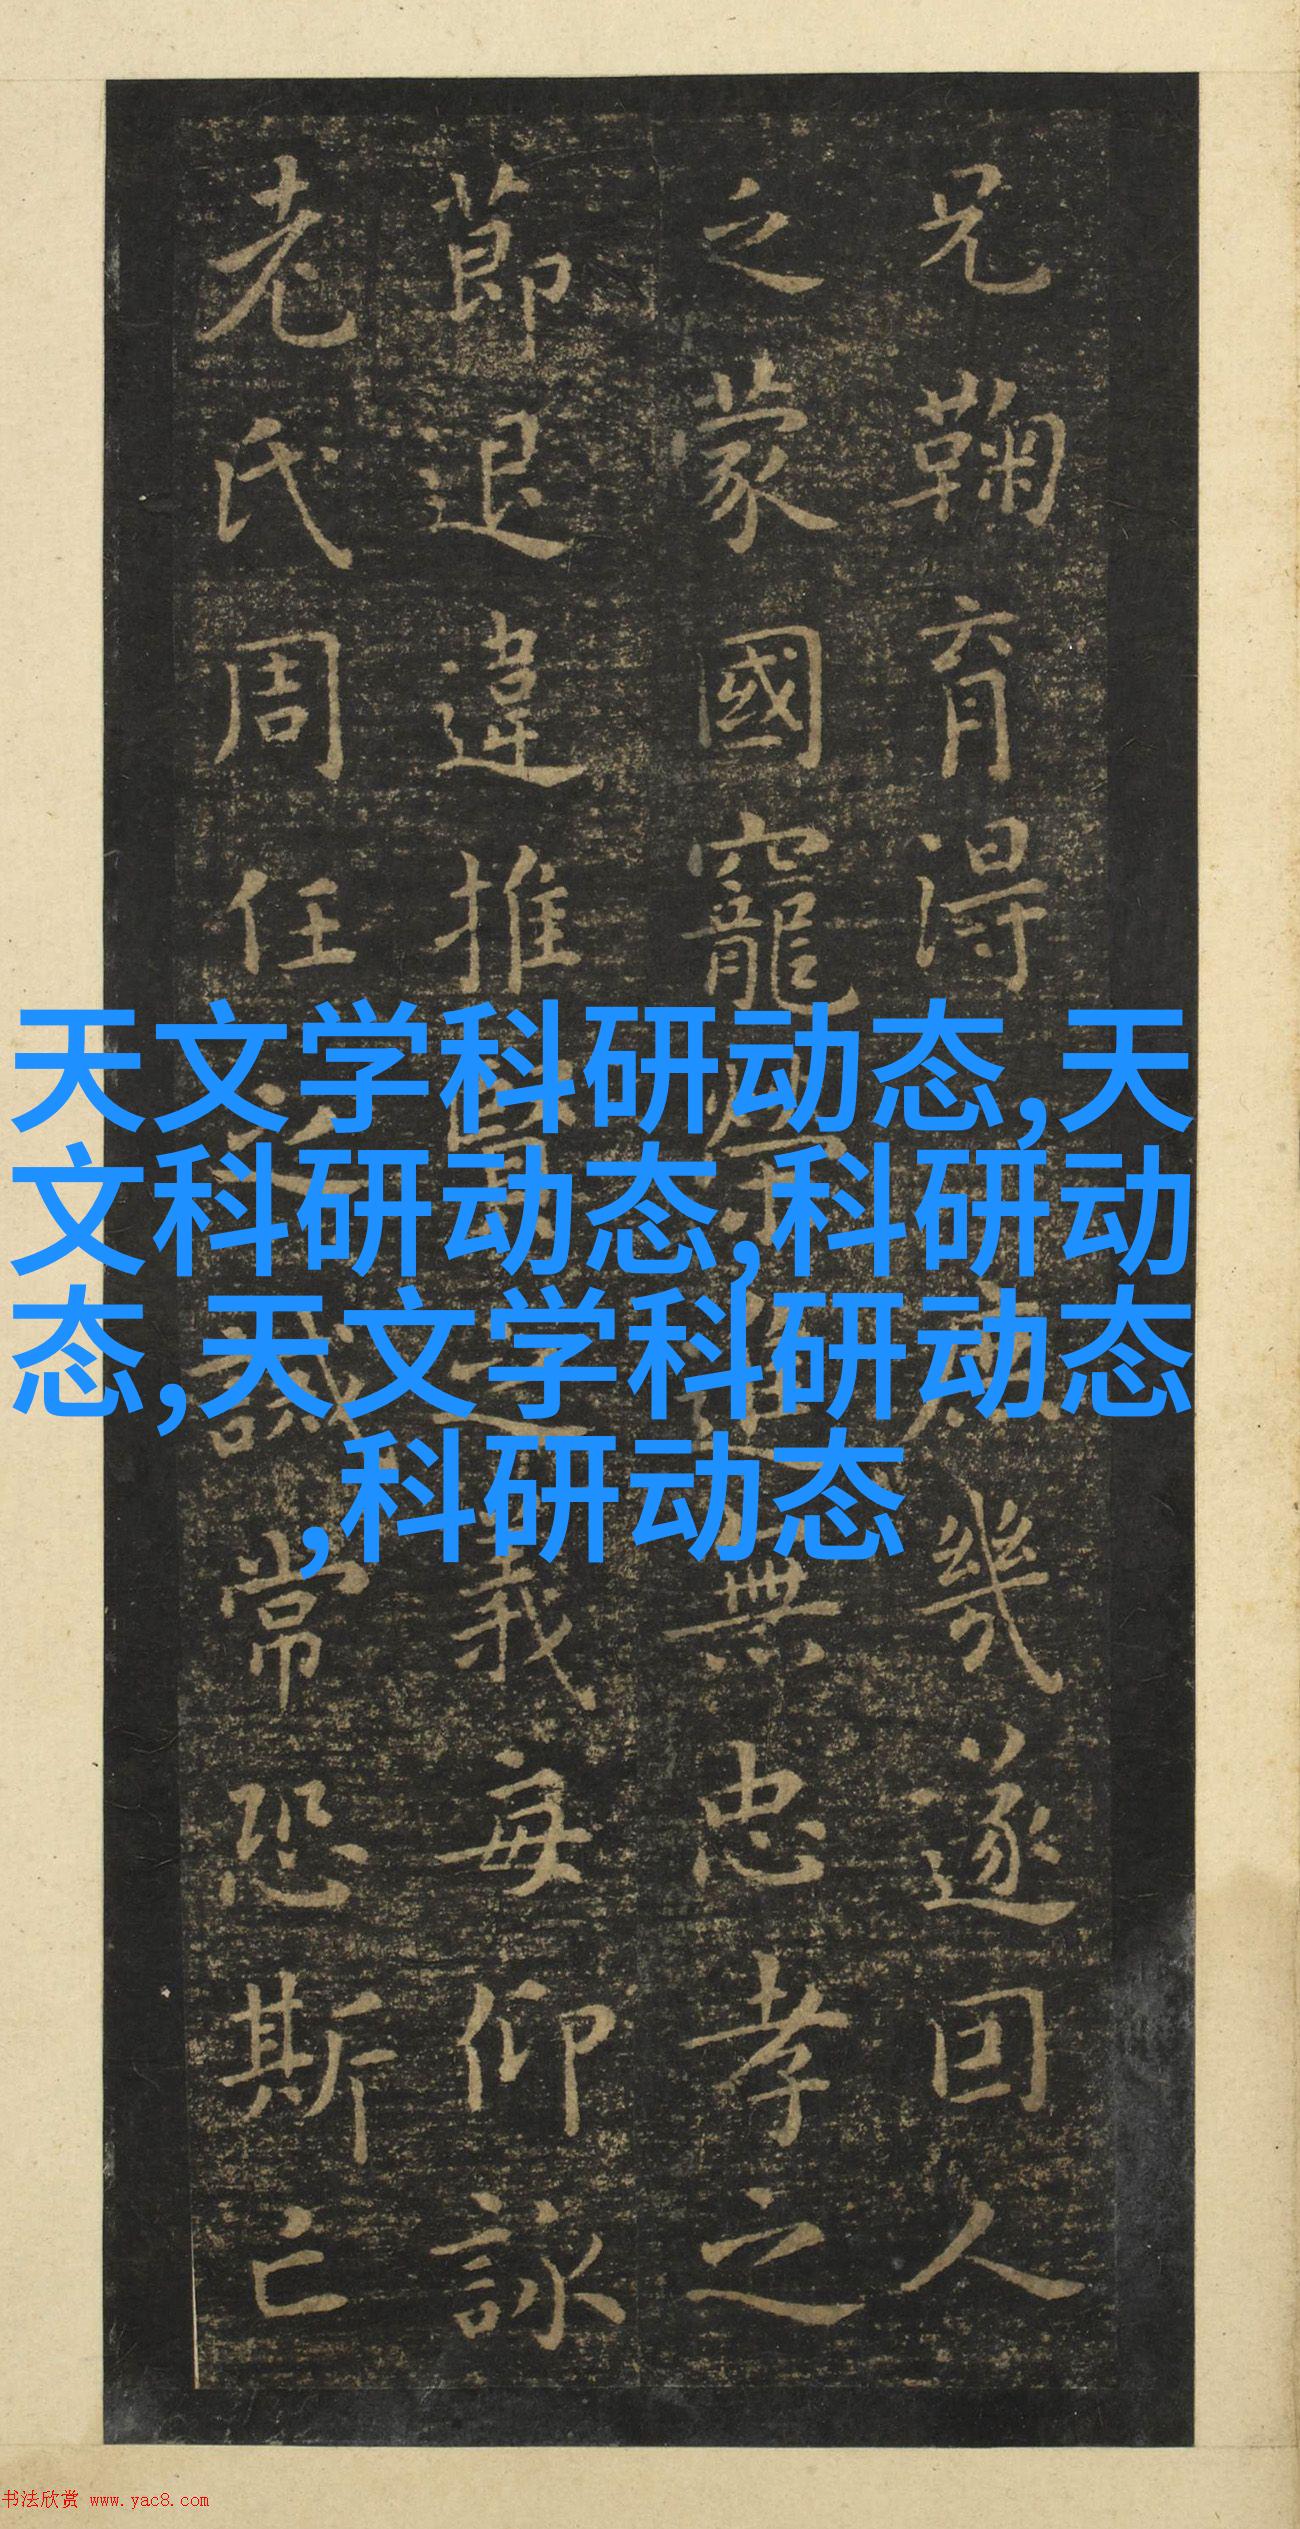 兄鞠育得庶幾遂因人
之蒙國寵榮進無忠孝之
節退違推賢之義每仰詠
老氏周任之誡常恐斯亡
天文学科研动态,天
文科研动态,科研动
态,天文学科研动态
,科研动态
书法欣赏 www.yac8.com